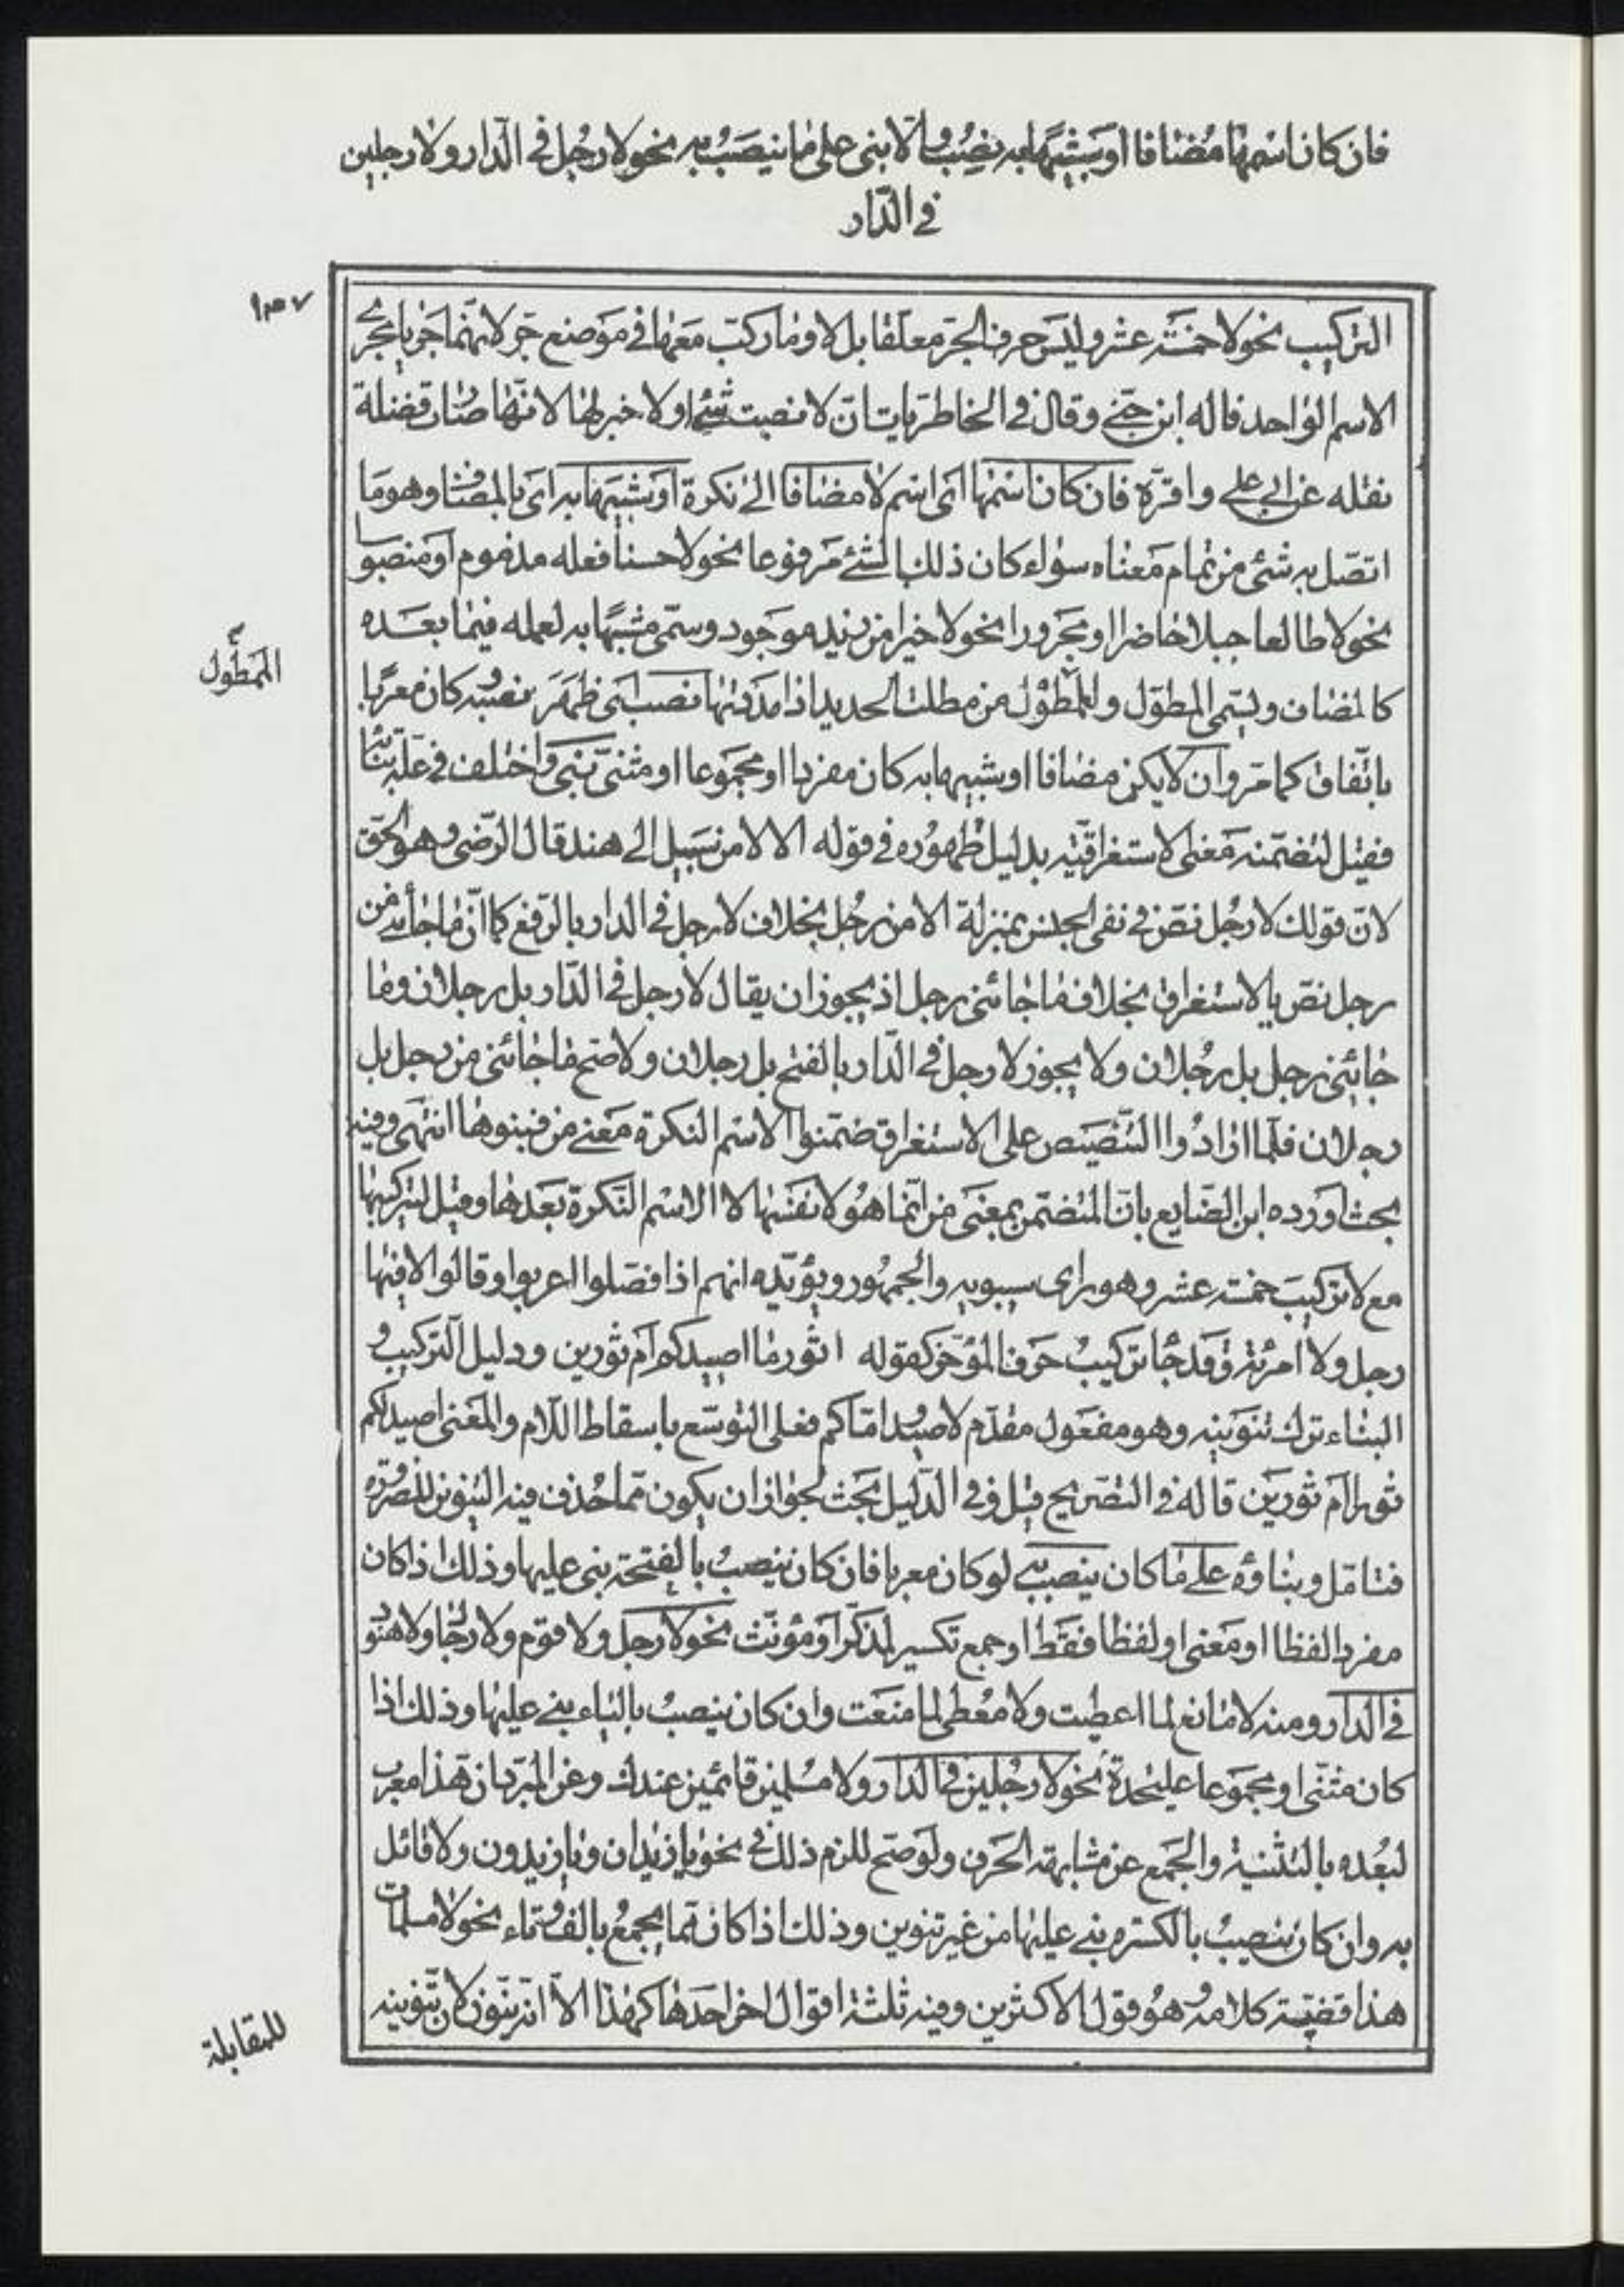 فان كان اسمها مضافا او شبيها به نصب والا بنى على ما ينصب به نحو لا رجل فى الدار ولا رجلين
فى الدار
التركيب نحو لا خمسة عشر وليس حرف الجر معلقا بل لا وما ركبت معها فى موضع جر لانهما جريا مجرى
الاسم الواحد قاله ابن جنى وقال فى الخاطريات ان لا نصبت شئ ولا خبر لها لانها صارت فضلة
نقله عن ابى على واقره فان كان اسمها اى اسم لا مضافا الى نكرة او شبيها به اى بالمضاف وهو ما
اتصل به شئ من تمام معناه سواء كان ذلك الشئ مرفوعا نحو لا حسنا فعله مذموم او منصوبا
نحو لا طالعا جبلا حاضر او مجرورا نحو لا خيرا من زيد موجود وسمى مشبها به لعمله فيما بعده
كالمضاف ويسمى المطول والممطول من مطلت الحديد اذا مددتها نصب اى ظهر نصبه كان معربا
الممطول
باتفاق كما مر وان لا يكن مضافا او شبيها به كان مفردا او مجموعا او مثنى بنى واختلف فى علة بنائه
فقيل لتضمنه معنى من الاستغراقية بدليل ظهوره فى قوله الا لا من سبيل الى هند قال الرضى وهو الحق
لان قولك لا رجل نص فى نفى الجنس بمنزلة لا من رجل بخلاف لا رجل فى الدار بالرفع كما ان ما جائنى من
رجل نص بالاستغراق بخلاف ما جائنى رجل اذ يجوز ان يقال لا رجل فى الدار بل رجلان وما
جائنى رجل بل رجلان ولا يجوز لا رجل فى الدار بالفتح بل رجلان ولا صح ما جائنى من رجل بل
رجلان فلما ارادوا التنصيص على الاستغراق ضمنوا الاسم النكرة معنى من فبنوها انتهى وفيه
بحث اورده ابن الضايع بان المتضمن بمعنى من انما هو لا نفسها لا الاسم النكرة بعدها وقيل لتركيبها
مع لا تركيب خمسة عشر وهو راى سيبويه والجمهور ويؤيده انهم اذا فصلوا اعربوا وقالوا لا فيها
رجل ولا امرئة وقد جا تركيب حرف المؤخر كقوله اثور ما اصيدكم ام ثورين ودليل التركيب و
البناء ترك تنوينه وهو مفعول مقدم لاصيد اماكم فعلى التوسع باسقاط اللام والمعنى اصيد لكم
ثورا ام ثورين قاله فى التصريح قيل وفى الدليل بحث لجواز ان يكون مما حذف فيه التنوين للضرورة
فتامل وبناؤه على ما كان ينصب به لو كان معربا فان كان ينصب بالفتحة بنى عليها وذلك اذا كان
مفرد الفظا او معنى او لفظا فقط او جمع تكسير لمذكر او مؤنث نحو لا رجل ولا قوم ولا رجال ولا هنود
فى الدار ومنه لا مانع لما اعطيت ولا معطى لما منعت وان كان ينصب بالياء بنى عليها وذلك اذا
كان مثنى او مجموعا على حدة نحو لا رجلين فى الدار ولا مسلمين قائمين عندك وعن المبرد ان هذا معرب
لبعده بالتثنية والجمع عن مشابهة الحرف ولو صح للزم ذلك فى نحو يا زيدان ويا زيدون ولا قائل
به وان كان ينصب بالكسرة بنى عليها من غير تنوين وذلك اذا كان مما يجمع بالف وتاء نحو لا مسلمات
هذا قضية كلامه وهو قول الاكثرين وفيه ثلثة اقوال اخر احدها كهذا الا انه ينون لان تنوينه
للمقابلة